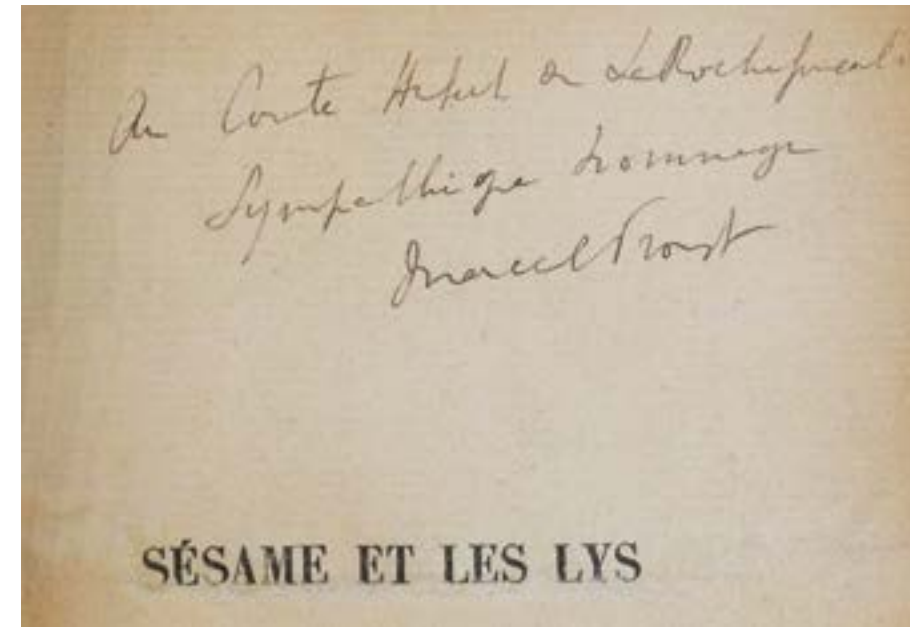 Au Comte de La Rochefoucauld
Sympathique hommage
Marcel Proust
SÉSAME ET LES LYS